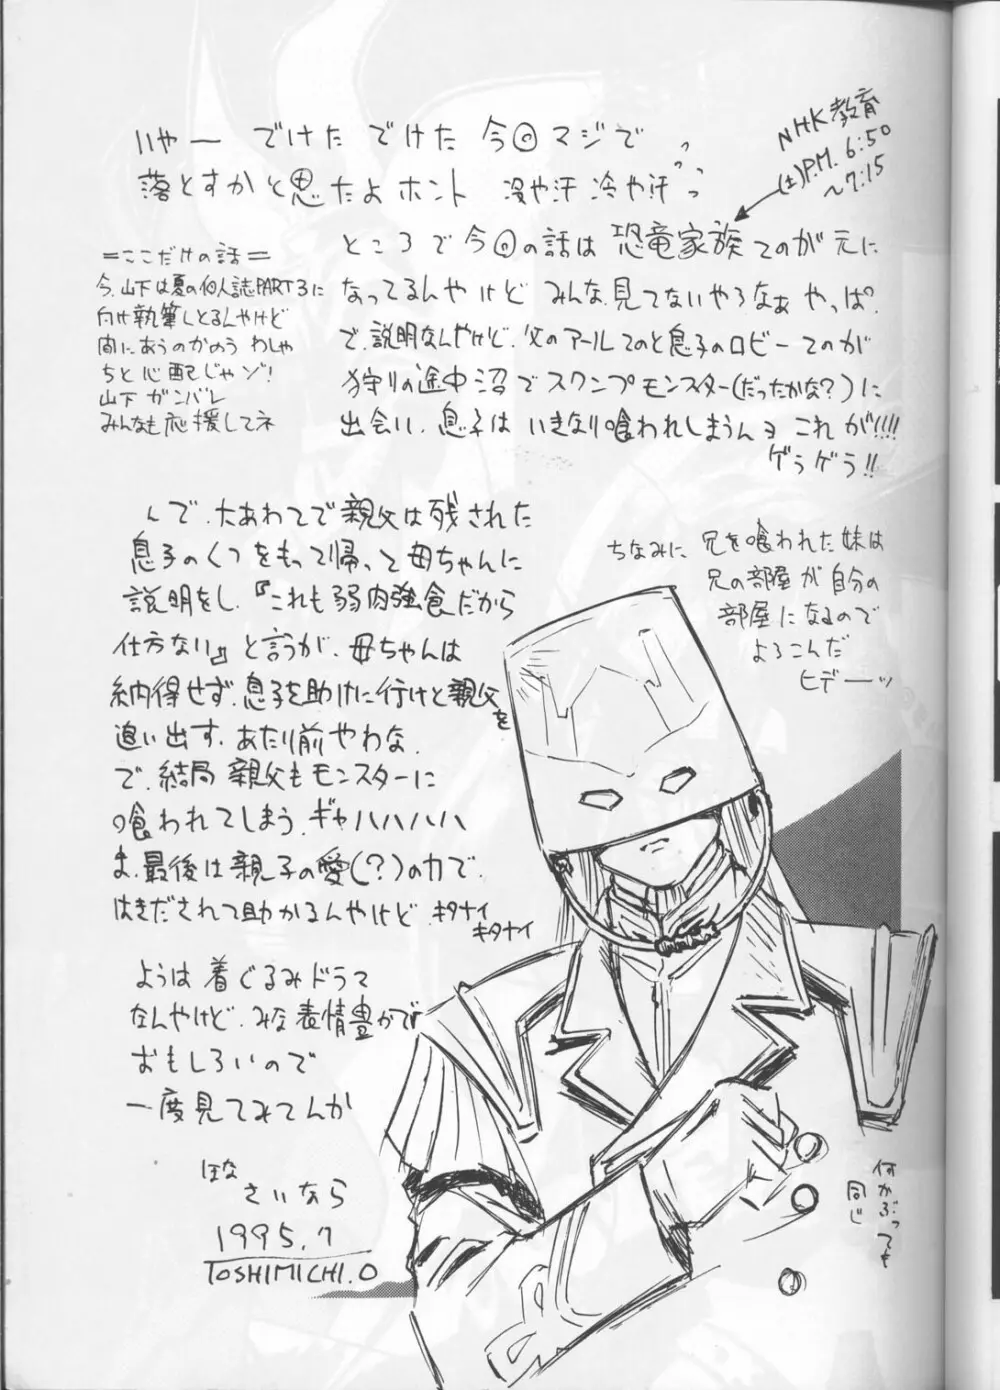 いやー でけた でけた 今回マジで
落とすかと思たよホント 冷や汗 冷や汗
NHK教育
(土)P.M. 6:50
～7:15
ところで今回の話は 恐竜家族 てのが 元に
なってるんやけど みんな見てないやろなぁ やっぱ。
で、説明なんやけど、父のアールてのと息子のロビーてのが
狩りの途中沼でスワンプモンスター(だったかな？)に
出会い、息子は いきなり喰われしまうんョ これが!!!!
ゲラゲラ!!
＝ここだけの話＝
今、山下は夏の個人誌PART3に
向け執筆しとるんやけど
間にあうのかのう わしゃ
ちと心配じゃゾ！
山下 ガンバレ
みんなも応援してネ
んで、大あわてで親父は残された
息子のくつをもって帰って母ちゃんに
説明をし、『これも弱肉強食だから
仕方ない』と言うが、母ちゃんは
納得せず、息子を助けに行けと親父を
追い出す、あたり前やわな、
で、結局 親父もモンスターに
喰われてしまう、ギャハハハハ
ま、最後は親子の愛(？)の力で、
はきだされて助かるんやけど キタナイ
キタナイ
ちなみに 兄を喰われた妹は
兄の部屋が自分の
部屋になるので
よろこんだ
ヒデーッ
ようは 着ぐるみドラマ
なんやけど、みな表情豊かで
おもしろいので
一度見てみてんか
ほな
さいなら
1995.7
TOSHIMICHI.O
何かぶっても
同じ